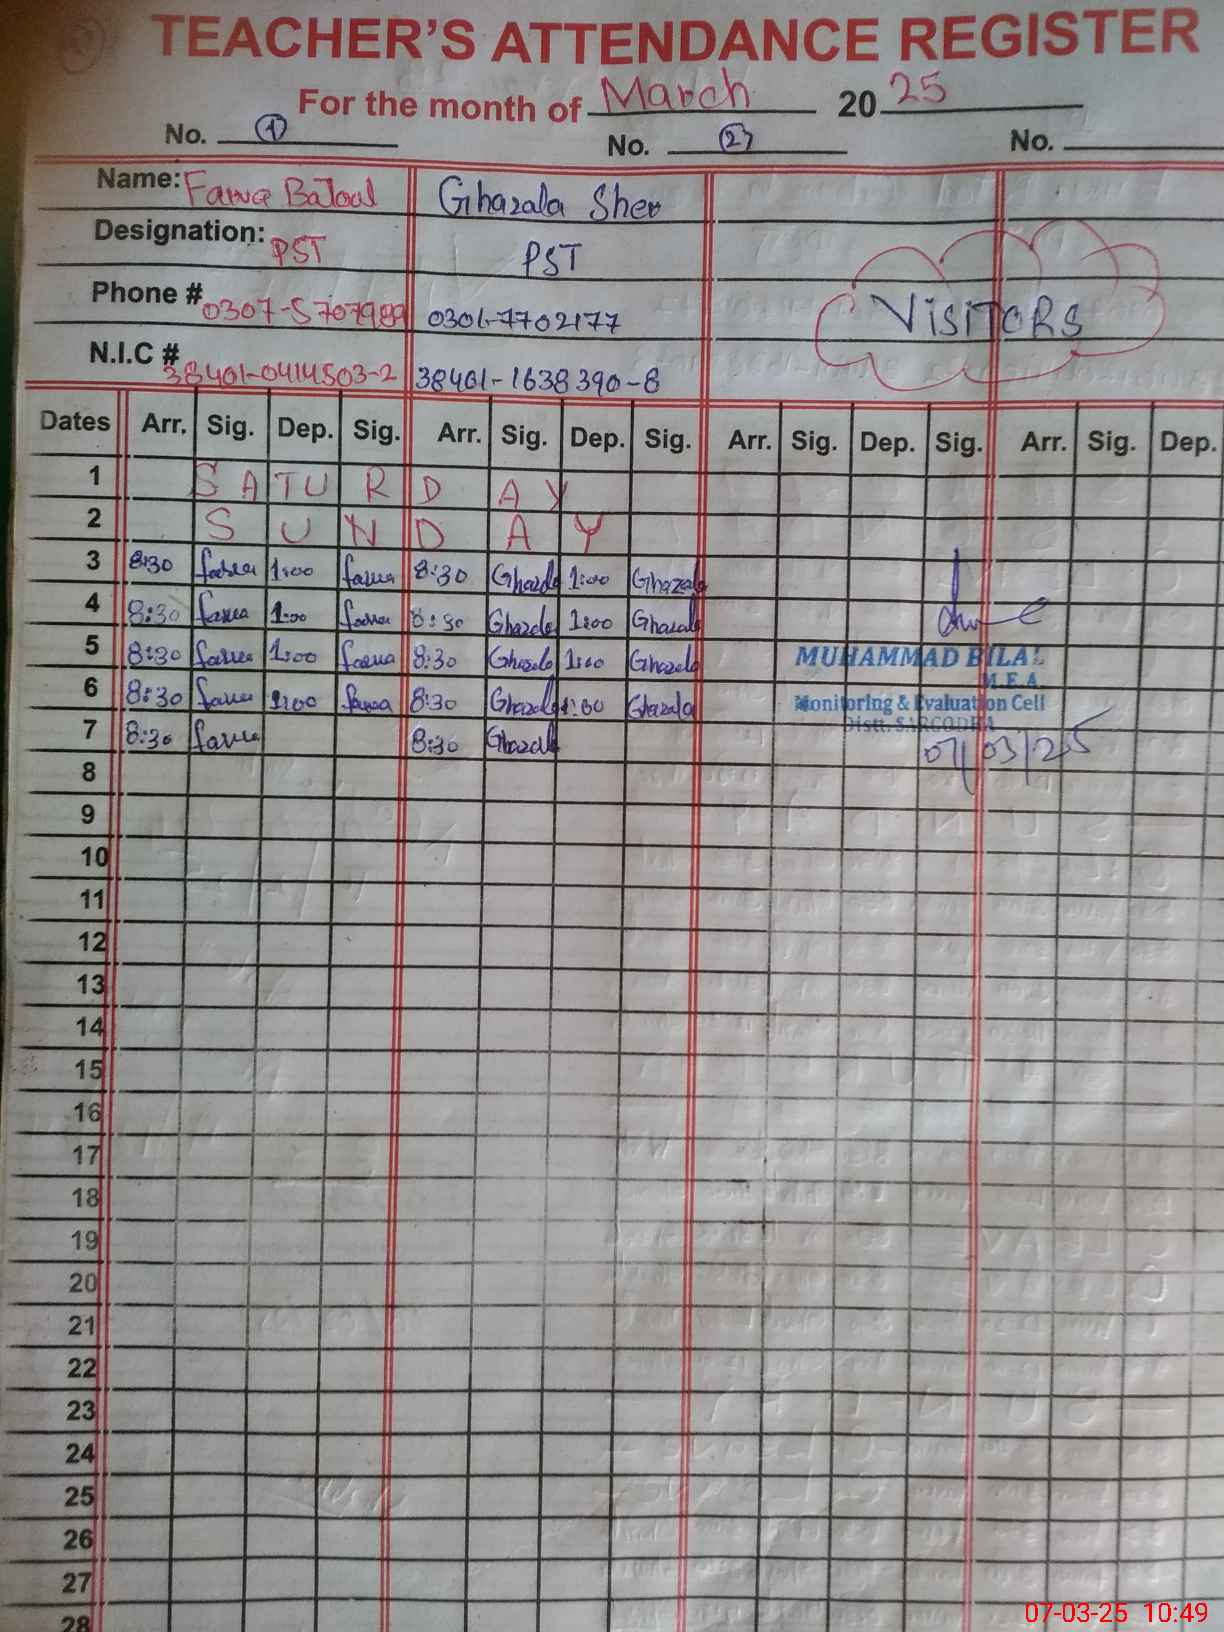 TEACHER'S ATTENDANCE REGISTER
For the month of March 2025
No. 1 No. 2 No.
Name: Farwa Batool Ghazala Sher
Designation: PST PST VISITORS
Phone # 0307-5707989 0301-7702177
N.I.C # 38401-0414503-2 38401-1638390-8
Dates Arr. Sig. Dep. Sig. Arr. Sig. Dep. Sig. Arr. Sig. Dep. Sig. Arr. Sig. Dep.
1 SATURDAY
2 SUNDAY
3 8:30 farwa 1:00 farwa 8:30 Ghazala 1:00 Ghazala
4 8:30 farwa 1:00 farwa 8:30 Ghazala 1:00 Ghazala
5 8:30 farwa 1:00 farwa 8:30 Ghazala 1:00 Ghazala MUHAMMAD BILAL
M.E.A.
6 8:30 farwa 1:00 farwa 8:30 Ghazala 1:00 Ghazala Monitoring & Evaluation Cell
Distt. SARGODHA
7 8:30 farwa 8:30 Ghazala 07/03/25
8
9
10
11
12
13
14
15
16
17
18
19
20
21
22
23
24
25
26
27
28
07-03-25 10:49